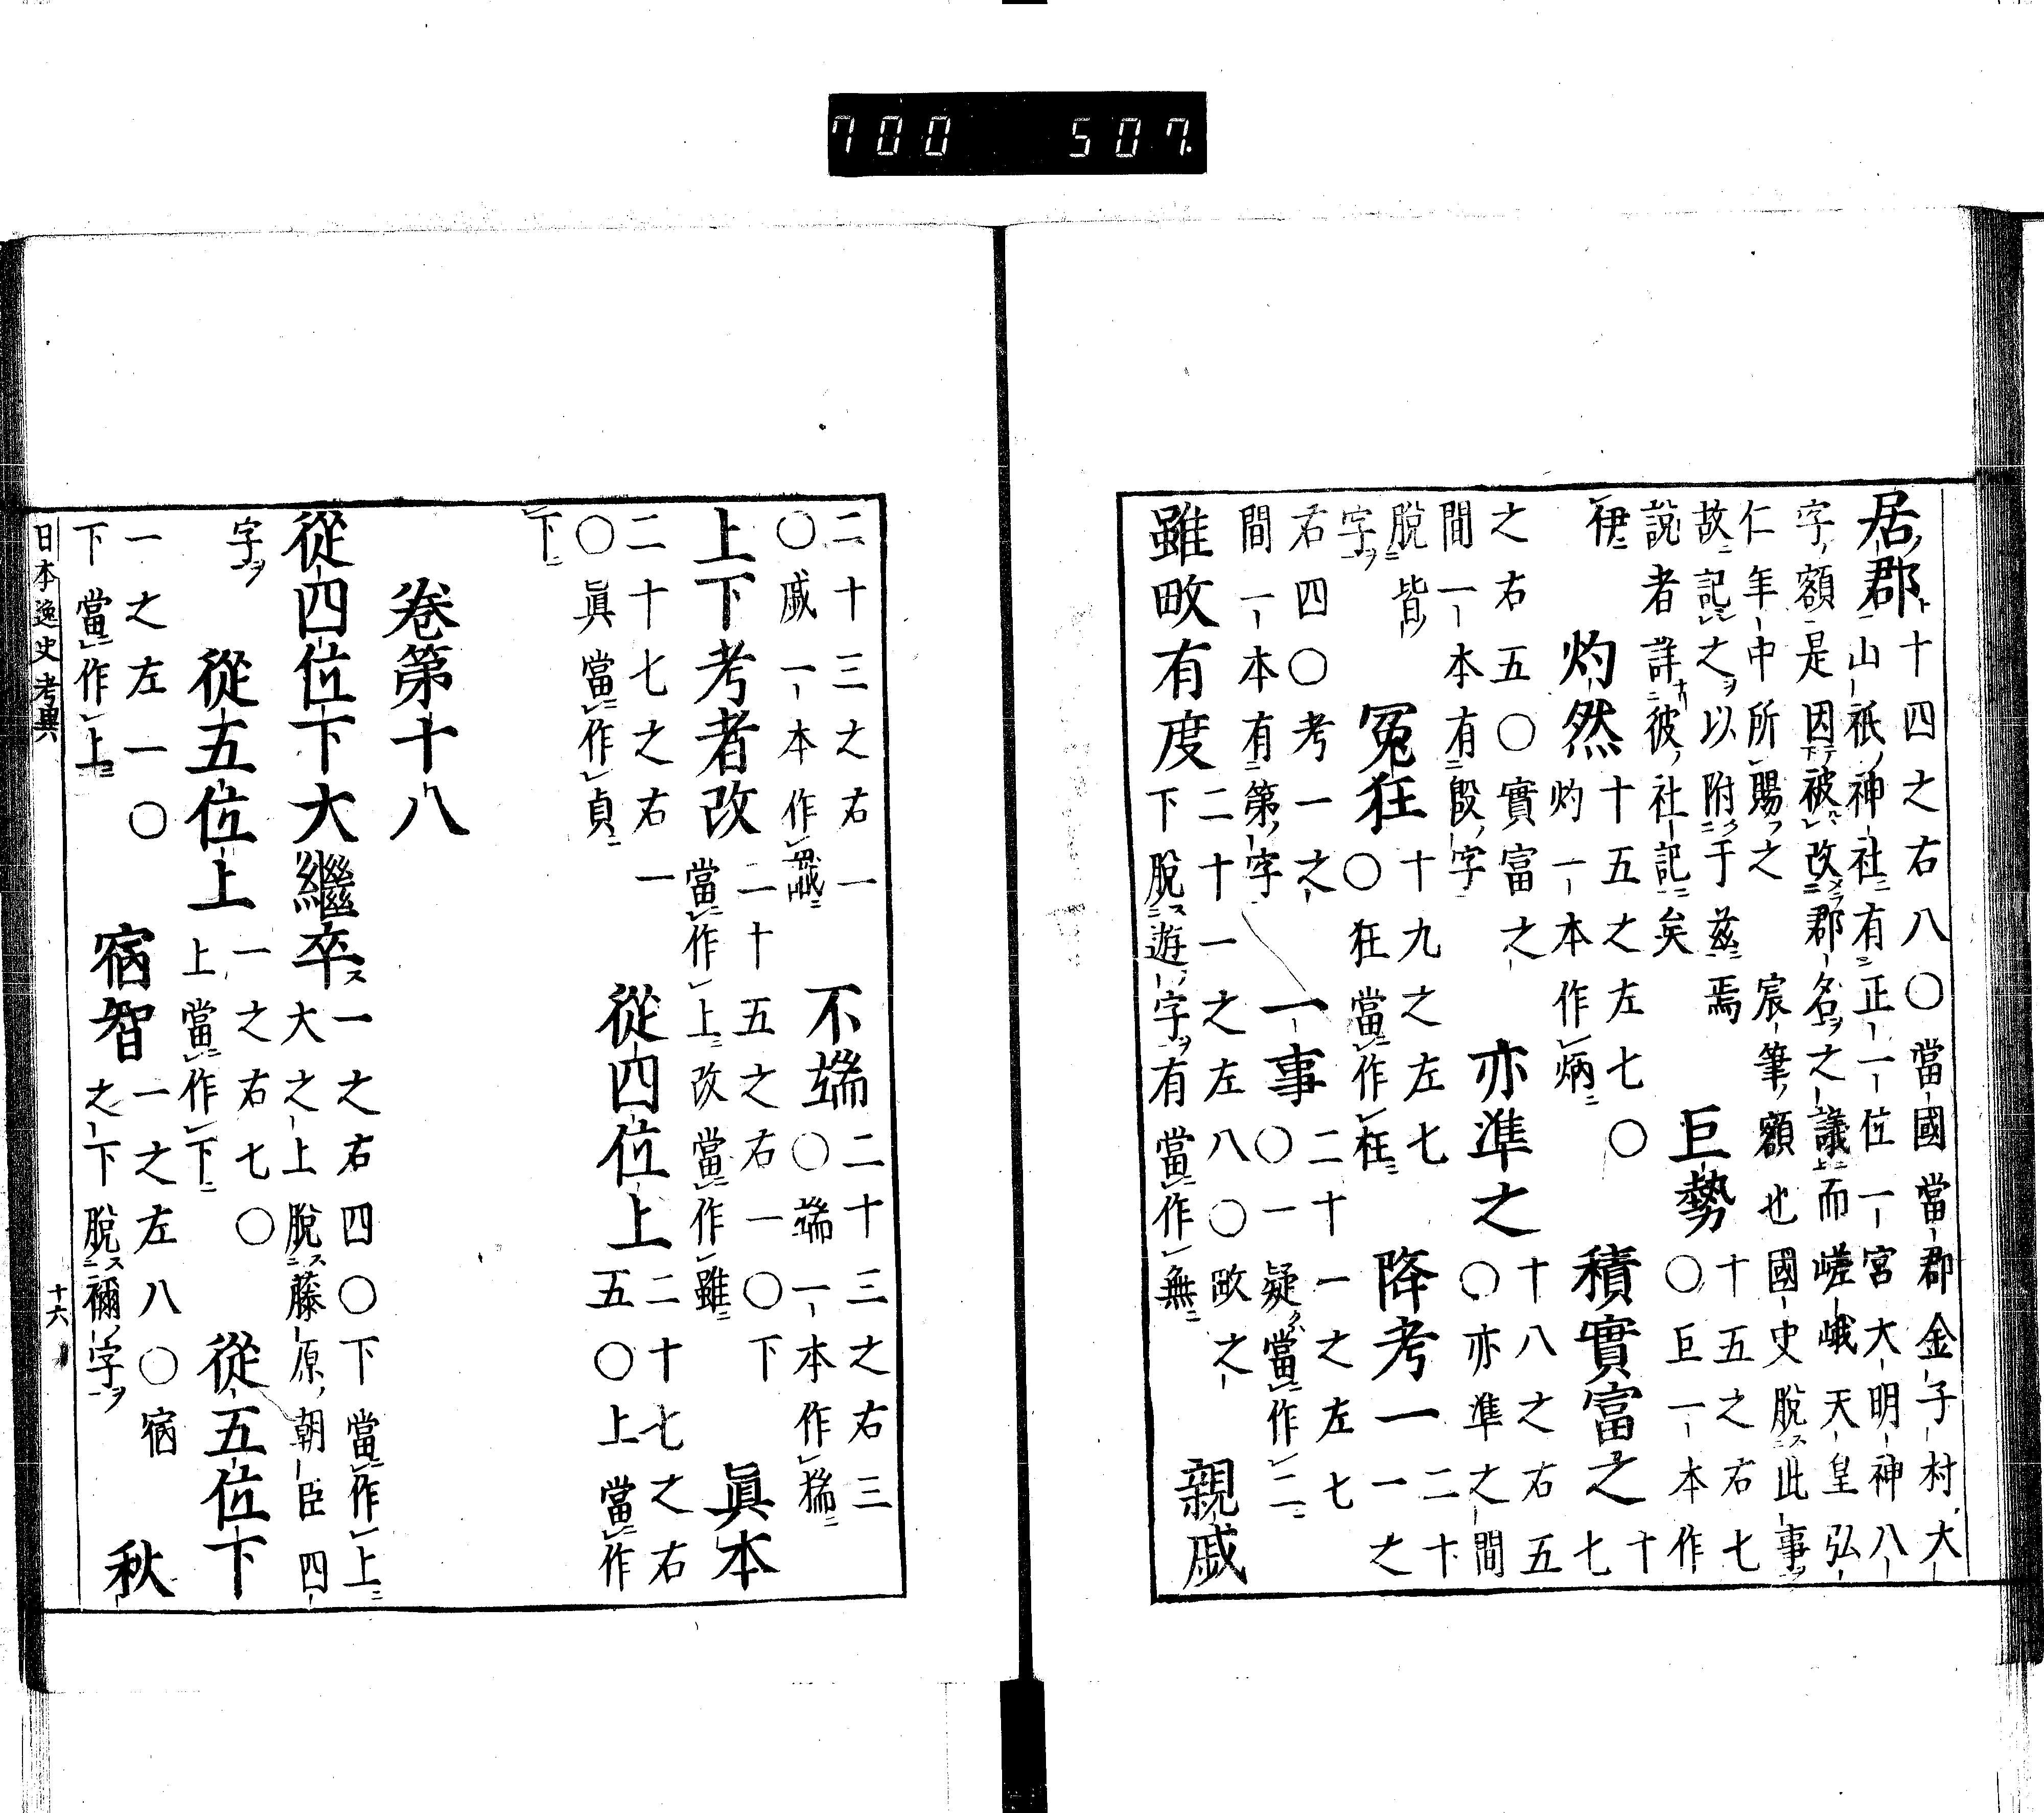 居郡十四之右八〇當國當郡金子村大
山祇神社有正一位一宮大明神八
字額是因被改郡名之議而嵯峨天皇弘
仁年中所賜之宸筆額也國史脫此事
故記之以附于茲焉
說者詳彼社記矣
巨勢十五之右七
〇巨一本作
伊
灼然十五之左七〇
灼一本作炳
積實富之十
七
之右五〇實富之
間一本有殷字
亦準之十八之右五
〇亦準之間
脫皆
字
冤狂十九之左七
〇狂當作枉
降考一二十
一之
右四〇考一之
間一本有第字
一事二十一之左七
〇一疑當作二
雖畋有度二十一之左八〇畋之
下脫遊字有當作無
親戚
二十三之右一
〇戚一本作
不端二十三之右三
〇端一本作
上下考者改二十五之右一〇下
當作上改當作雖
眞本
二十七之右一
〇眞當作貞
從四位上二十七之右
五〇上當作
下
卷第十八
從四位下大繼卒一之右四〇下當作上
大之上脫藤原朝臣四
字
從五位上一之右七〇
上當作下
從五位下
一之左一〇
下當作上
宿智一之左八〇宿
之下脫禰字
秋
日本逸史考異
十六
700 507